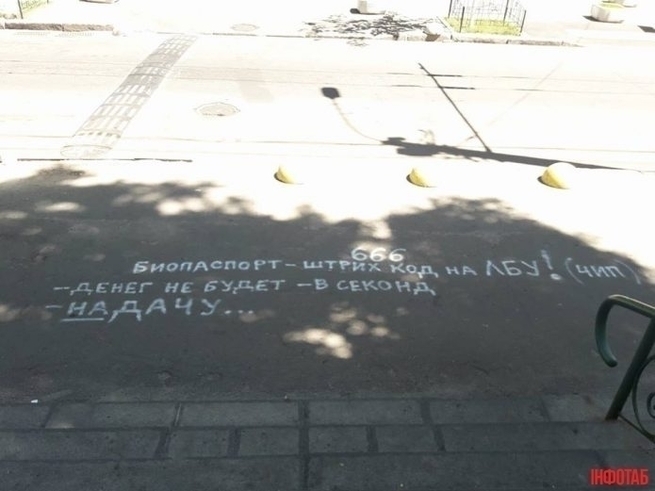 666
БИОПАСПОРТ – ШТРИХ КОД НА ЛБУ! (ЧИП)
– ДЕНЕГ НЕ БУДЕТ – В СЕКОНД
– НА ДАЧУ...
ІНФОТАБ